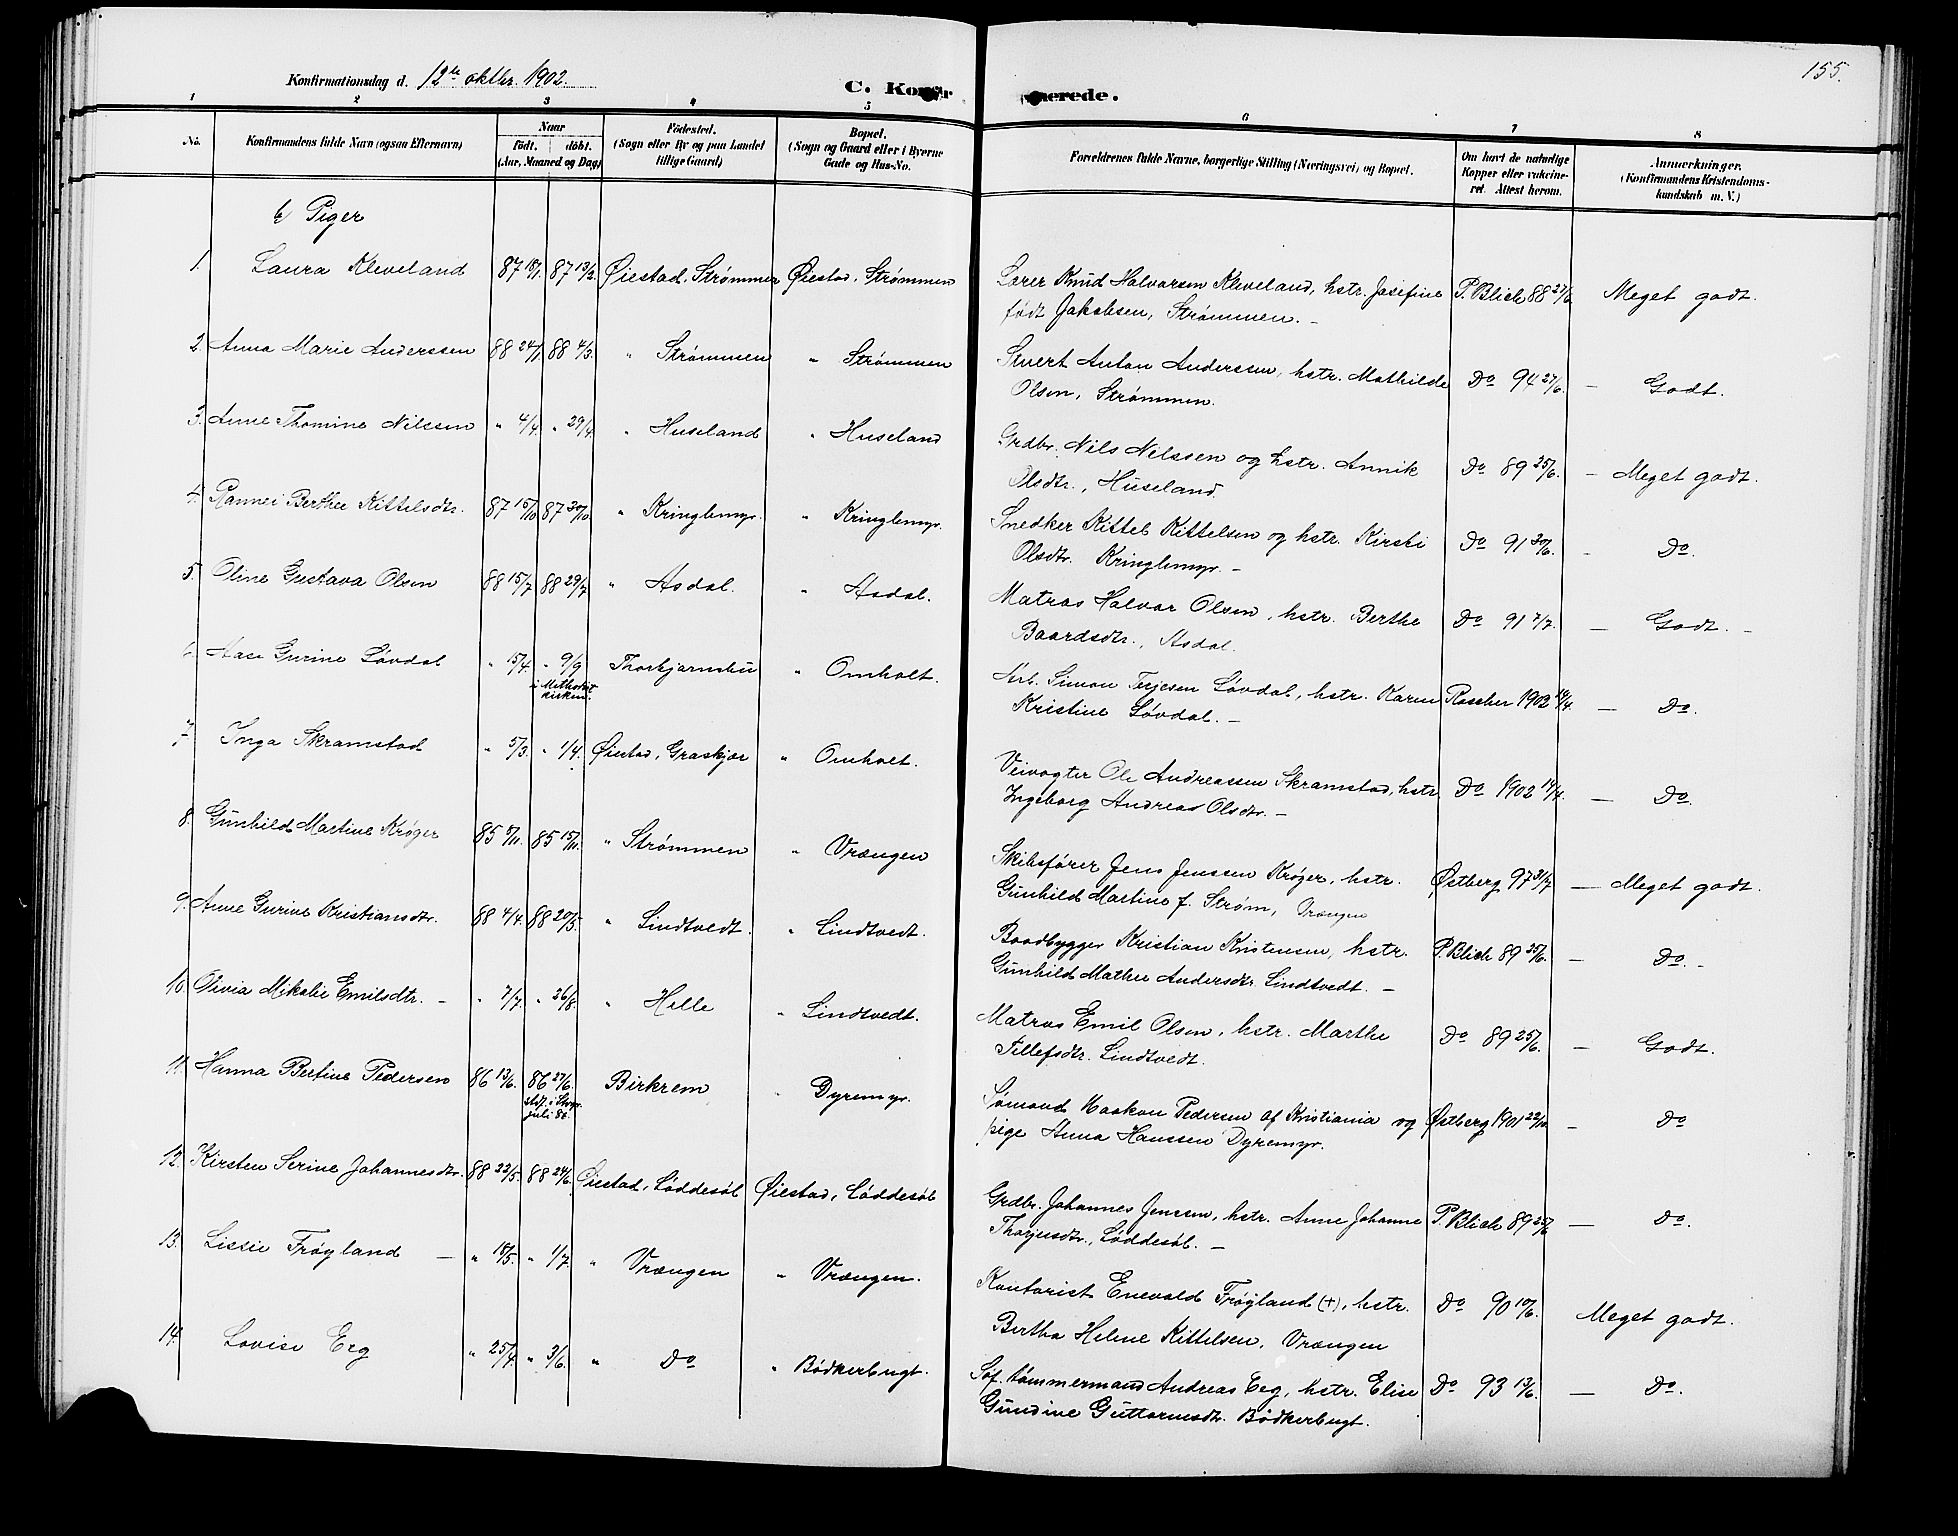 155.
Konfirmationsdag d. 12te oktbr. 1902.
C. Konfirmerede.
1 2 3 4 5 6 7 8
No.
Konfirmandens fulde Navn (ogsaa Efternavn)
Naar
födt. döbt.
(Aar, Maaned og Dag)
Födested.
(Sogn eller By og paa Landet
tillige Gaard)
Bopæl.
(Sogn og Gaard eller i Byerne
Gade og Hus-No.
Forældrenes fulde Navne, borgerlige Stilling (Næringsvei) og Bopæl.
Om havt de naturlige
Kopper eller vakcine-
ret. Attest herom.
Anmærkninger.
(Konfirmandens Kristendoms-
kundskab m. V.)
b Piger
1. Laura Kleveland 87 18/1. 87 13/2. Øiestad, Strømmen Øiestad, Strømmen Lærer Knud Halvorsen Kleveland, hstr. Josefine P. Blich 88 27/6 Meget godt.
født Jakobsen, Strømmen. –
2. Anna Marie Anderssen 88 24/1. 88 4/3. " Strømmen " Strømmen Stuert Anton Anderssen, hstr. Mathilde Do 94 27/6. – Godt.
Olsen, Strømmen.
3. Anne Thomine Nilssen " 4/4. " 29/4 " Huseland " Huseland Grdbr. Nils Nilssen og hstr. Annik Do 89 25/6. – Meget godt.
Olsdtr., Huseland.
4. Rannei Berthee Kittelsdtr. 87 15/10 87 30/10 " Kringlemyr. " Kringlemyr. Snedker Kittel Kittelsen og hstr. Kirsti Do 91 30/6. – Do.
Olsdtr. Kringlemyr. –
5. Oline Gustava Olsen 88 15/7 88 29/7 " Asdal. " Asdal. Matros Halvor Olsen, hstr. Berthe Do 91 7/7. – Godt. –
Baardsdtr., Asdal.
6. Aase Gurine Løvdal " 15/4. " 9/9 Thorbjørnsbu " Omholt. Arb. Simon Terjesen Løvdal, hstr. Karen Roscher 1902 14/4. – Do.
i Methodist
kirken.
Kristine Løvdal. –
7. Inga Skramstad " 5/3. " 1/4. Øiestad, Graskjær " Omholt. Veivogter Ole Andreassen Skramstad, hstr. Do 1902 14/4. – Do.
Ingeborg Andrea Olsdtr. –
8. Gunhild Martine Krøger 85 5/11. 85 15/11. " Strømmen " Vrængen Skibsfører Jens Jenssen Krøger, hstr. Østberg 97 31/7 – Meget godt.
Gunhild Martine f. Strøm, Vrængen
9. Anne Gurine Kristiansdtr. 88 4/4. 88 20/5. " Lindtvedt. " Lindtvedt. Baadbygger Kristian Kristensen, hstr. P. Blich 89 25/6. – Do. –
Gunhild Mathee Andersdtr. Lindtvedt. –
10. Olivia Mikalie Emilsdtr. – " 7/7. " 26/8. " Helle " Lindtvedt. Matros Emil Olsen, hstr. Marthe Do 89 25/6. – Godt.
Tellefsdtr. Lindtvedt.
11. Hanna Bertine Pedersen 86 13/6. 86 27/6. Birkrem " Dyremyr. Sømand Haakon Pedersen af Kristiania og Østberg 1901 22/10. – Do
juli 86.
pige Anna Hanssen Dyremyr.
12. Kirsten Serine Johannesdtr. 88 22/5. 88 24/6. Øiestad, Løddesøl Øiestad, Løddesøl Grdbr. Johannes Jenssen, hstr. Anne Johanne P. Blich 89 25/6 – Do.
Thorjusdtr., Løddesøl. –
13. Lissie Frøyland – " 18/5. " 1/7. " Vrængen " Vrængen. Kontorist Enevald Frøyland (+), hstr. Do 90 10/6. Meget godt.
Bertha Helene Kittelsen, Vrængen
14. Lovise Eeg " 25/4. " 3/6. " Do " Bödkerbugt. Søf. tømmermand Andreas Eeg, hstr. Elise Do 93 13/6. – Do.
Gundine Guttormsdtr. Bödkerbugt.